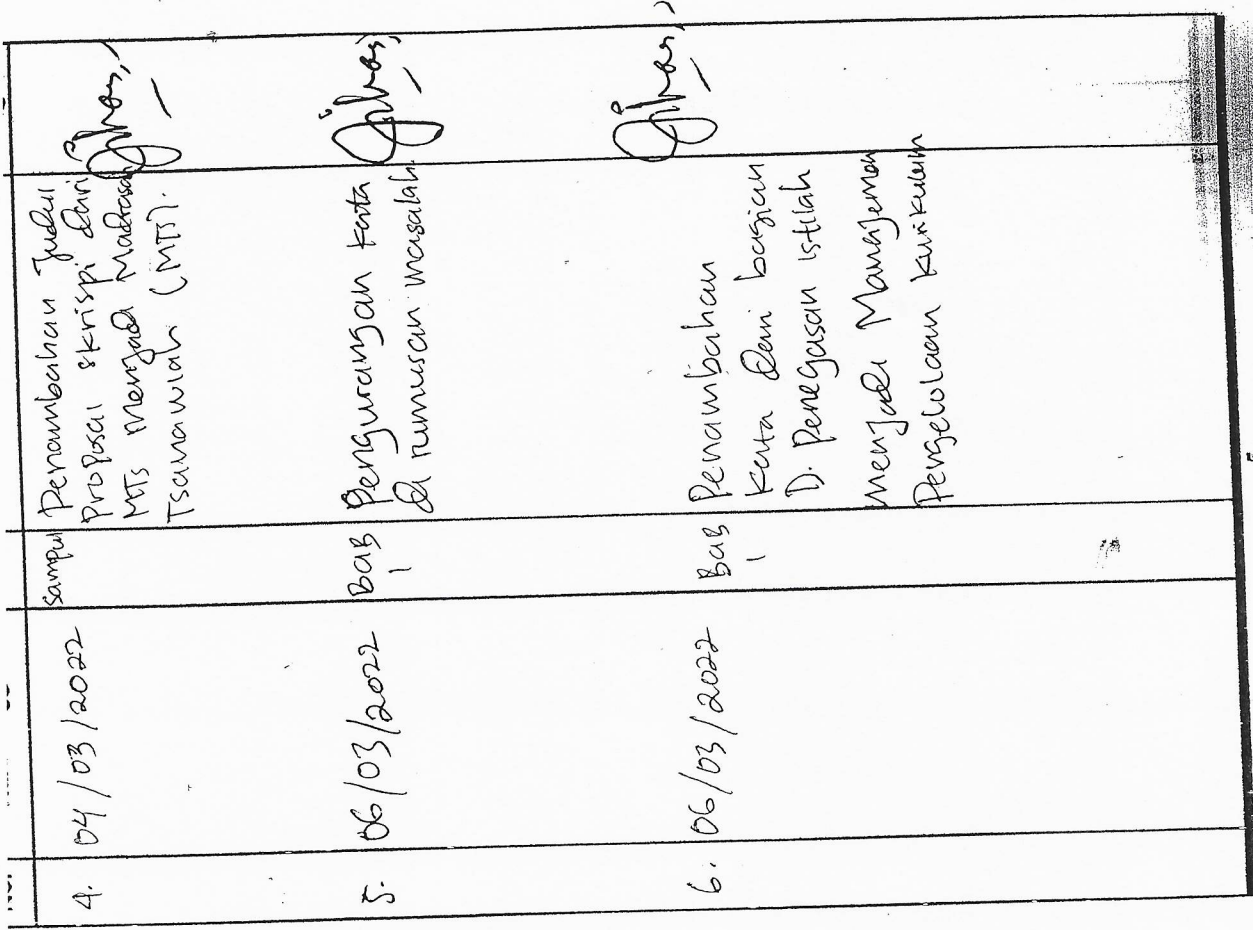 4.
04/03/2022
Sampul
Penambahan Judul
Proposal skripsi dari
MTs menjadi Madrasah
Tsanawiah (MTs).
5.
06/03/2022
BAB
1
Pengurangan kata
di rumusan masalah
6.
06/03/2022
BAB
1
Penambahan
kata dari bagian
D. Penegasan istilah
menjadi Manajemen
Pengelolaan kurikulum